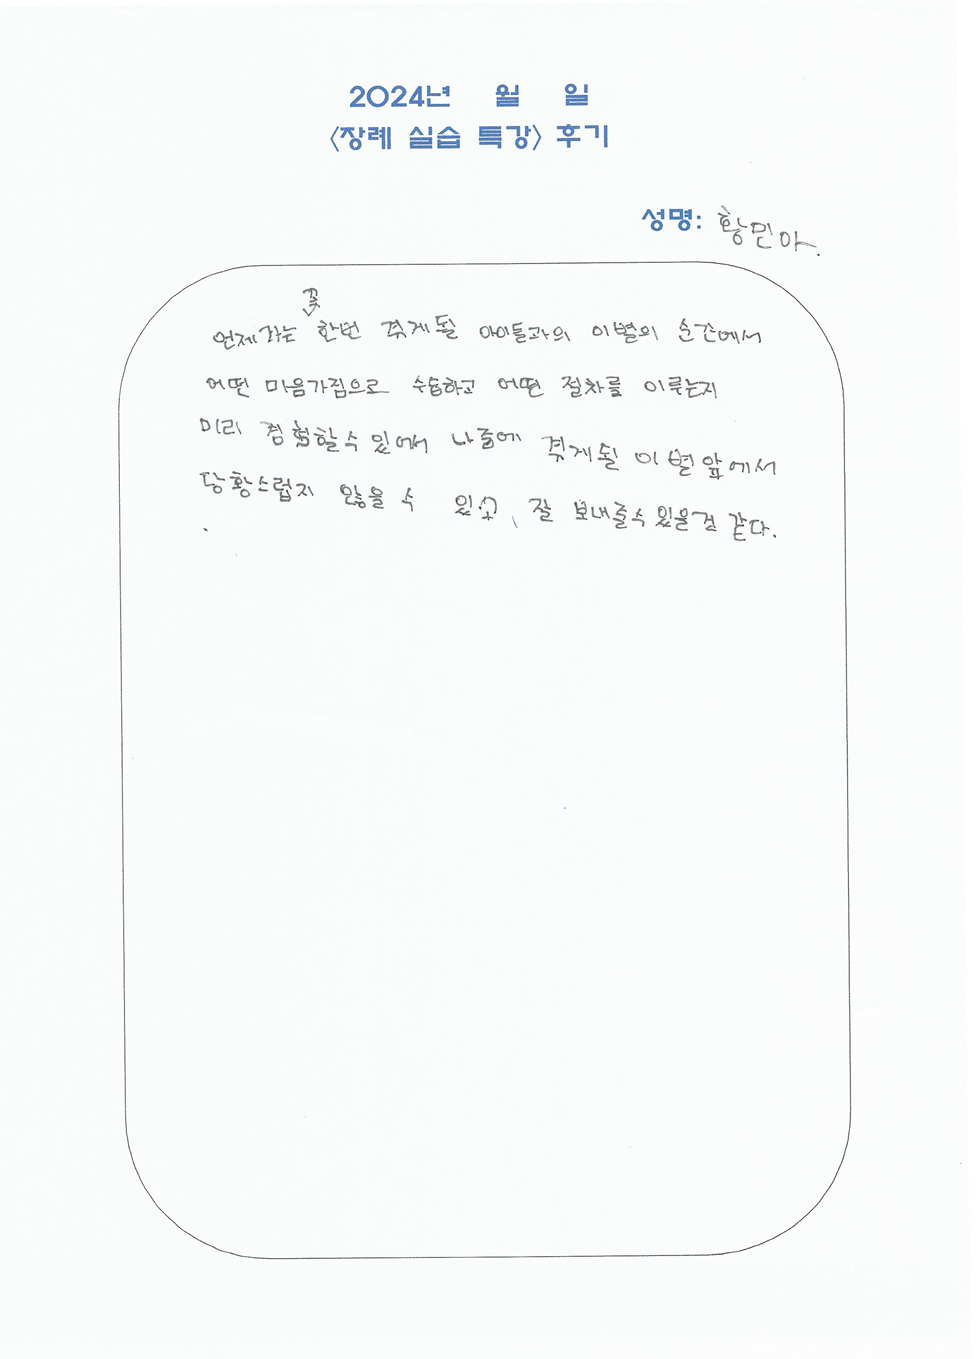 2024년 월 일
<장례 실습 특강> 후기
성명: 황민아.
꽃
언제라는 한번 겪게될 아이들과의 이별의 순간에서
어떤 마음가짐으로 수습하고 어떤 절차를 이루는지
미리 경험할수 있에서 나중에 겪게될 이별앞에서
당황스럽지 않을 수 있고, 잘 보내줄수있을것 같다.